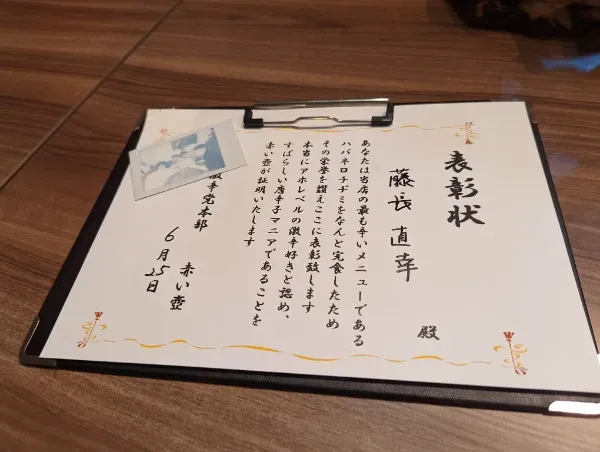 表彰状
直幸 殿
あなたは当店の最も辛いメニューである
ハバネロチヂミをなんと完食したため
その栄誉を讃えここに表彰致します
本当にアホレベルの激辛好きと認め、
すばらしい唐辛子マニアであることを
赤い壺が証明いたします
激辛党本部 赤い壺
6月25日